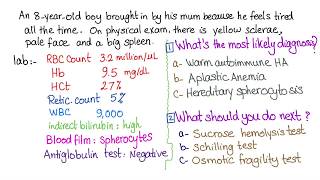 An 8-year-old boy brought in by his mum because he feels tired
all the time. On physical exam, there is yellow sclerae,
pale face and a big spleen.
lab:-
RBC Count 3.2 million/uL
Hb 9.5 mg/dL
HCt 27%
Retic. count 5%
WBC 9,000
indirect bilirubin: high
Blood film: spherocytes
Antiglobulin test: Negative
1 What's the most likely diagnosis?
a- Warm autoimmune HA
b- Aplastic Anemia
c- Hereditary spherocytosis
2 What should you do next?
a- Sucrose hemolysis test
b- Schilling test
c- Osmotic fragility test